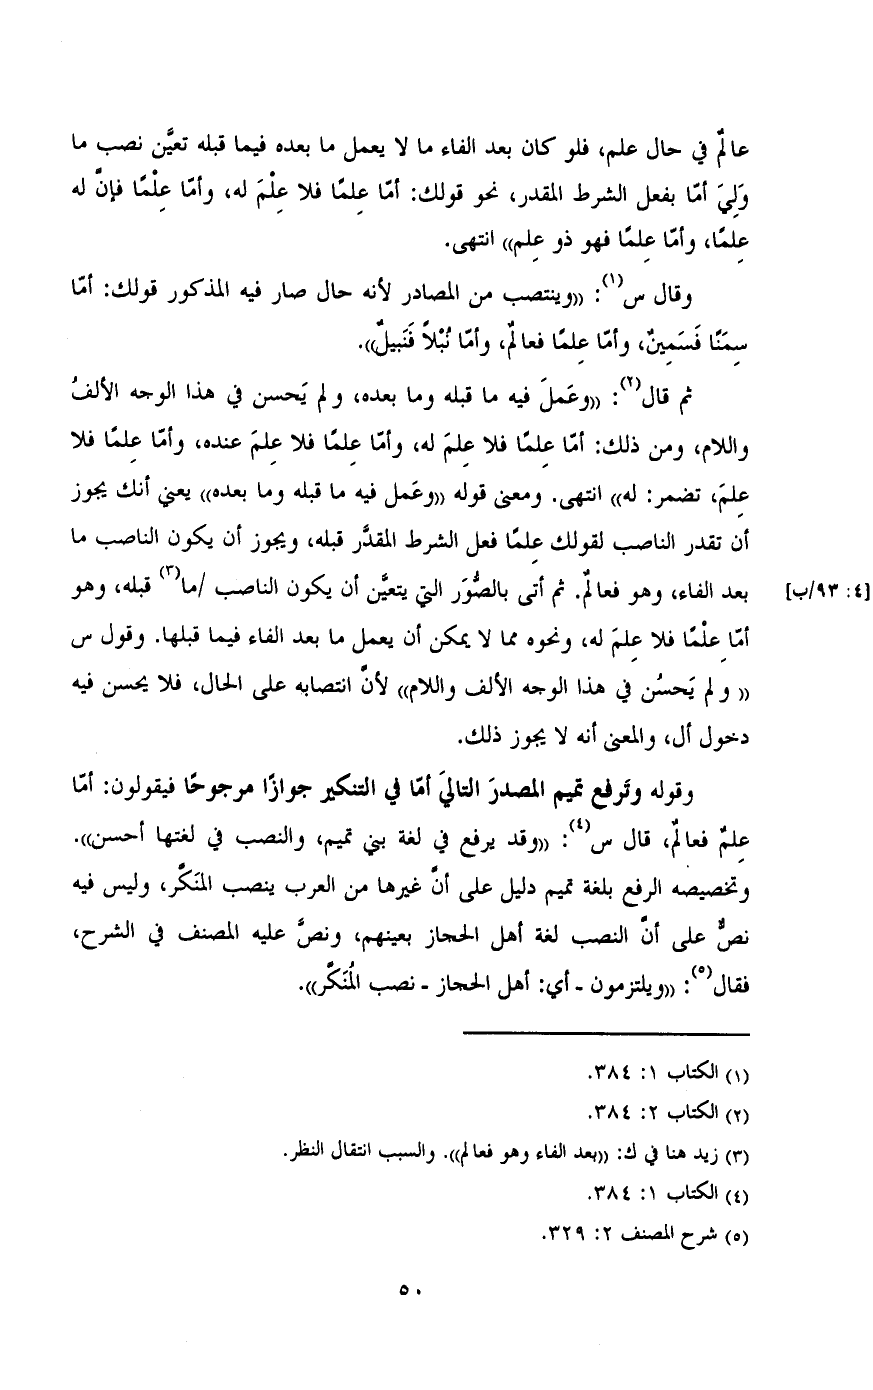 عالمٌ في حال علم، فلو كان بعد الفاء ما لا يعمل ما بعده فيما قبله تعيَّن نصب ما
وَلِيَ أمّا بفعل الشرط المقدر، نحو قولك: أمّا عِلمًا فلا عِلْمَ له، وأمّا عِلْمًا فإنَّ له
عِلمًا، وأمّا عِلمًا فهو ذو عِلم)) انتهى.
وقال س(١): ((وينتصب من المصادر لأنه حال صار فيه المذكور قولك: أمّا
سِمَنًا فَسَمِينٌ، وأمّا عِلمًا فعالمٌ، وأمّا نُبْلاً فَنَبيلٌ)).
ثم قال(٢): ((وعَملَ فيه ما قبله وما بعده، ولم يَحسن في هذا الوجه الألفُ
واللام، ومن ذلك: أمّا عِلمًا فلا عِلمَ له، وأمّا عِلمًا فلا عِلمَ عنده، وأمّا عِلمًا فلا
عِلمَ، تضمر: له)) انتهى. ومعنى قوله ((وعَمل فيه ما قبله وما بعده)) يعني أنك يجوز
أن تقدر الناصب لقولك عِلمًا فعل الشرط المقدَّر قبله، ويجوز أن يكون الناصب ما
بعد الفاء، وهو فعالمٌ. ثم أتى بالصُّوَر التي يتعيَّن أن يكون الناصب /ما(٣) قبله، وهو
[٤: ٩٣/ب]
أمّا عِلْمًا فلا عِلمَ له، ونحوه مما لا يمكن أن يعمل ما بعد الفاء فيما قبلها. وقول س
(( ولم يَحسُن في هذا الوجه الألف واللام)) لأنَّ انتصابه على الحال، فلا يحسن فيه
دخول أل، والمعنى أنه لا يجوز ذلك.
وقوله وتَرفع تميم المصدرَ التاليَ أمّا في التنكير جوازًا مرجوحًا فيقولون: أمّا
عِلمٌ فعالمٌ، قال س(٤): ((وقد يرفع في لغة بني تميم، والنصب في لغتها أحسن)).
وتخصيصه الرفع بلغة تميم دليل على أنَّ غيرها من العرب ينصب المُنَكَّر، وليس فيه
نصٌّ على أنَّ النصب لغة أهل الحجاز بعينهم، ونصَّ عليه المصنف في الشرح،
فقال(٥): ((ويلتزمون - أي: أهل الحجاز - نصب المُنَكَّر)).
(١) الكتاب ١: ٣٨٤.
(٢) الكتاب ٢: ٣٨٤.
(٣) زيد هنا في ك: ((بعد الفاء وهو فعالم)). والسبب انتقال النظر.
(٤) الكتاب ١: ٣٨٤.
(٥) شرح المصنف ٢: ٣٢٩.
٥٠